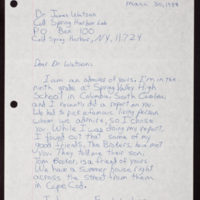 March 30, 1989
Dr James Watson
Cold Spring Harbor Lab
P.O. Box 100
Cold Spring Harbor, N.Y. 11724
Dear Dr Watson:
I am an admirer of yours. I'm in the
ninth grade at Spring Valley High
School in Columbia, South Carolina
and I recently did a report on you.
We had to pick a famous living person
whom we admire, so I chose
you. While I was doing my report,
I found out that some of my
good friends, The Bosters, have met
you. They telling their son,
Tom Boster, is a friend of yours.
We have a summer house right
across the street from them
in Cape Cod.